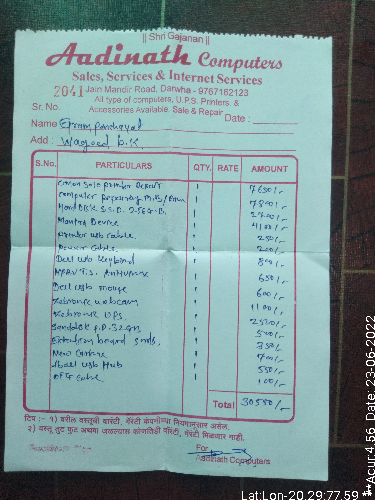 || Shri Gajanan ||
Aadinath Computers
Sales, Services & Internet Services
Jain Mandir Road, Darwha - 9767162123
All type of computers, U.P.S. Printers, &
Accessories Available. Sale & Repair
Sr. No. 2041 Date :
Name Grampanchayat
Add : Wagood B.K.
S.No. PARTICULARS QTY. RATE AMOUNT
Canon Printer 1 7650/-
Computer Repairing M.B/Ram 1 7800/-
Hard Disk S.S.D. 256 G.B. 1 2700/-
Mantra Device 1 4100/-
Printer usb cable 1 250/-
Power Cable 1 200/-
Dell usb Keyboard 1 800/-
T.S. Antivirus 1 650/-
Dell usb mouse 1 600/-
Zebronic webcam 1 1100/-
Zebronic UPS 1
Sandisk P.D. 32 GB 1 500/-
Extension board 1 350/-
1 700/-
usb Hub 1 550/-
OTG cable 1 100/-
Total 30580/-
टिप :- १) वरील वस्तूची वारंटी, गॅरंटी कंपनीच्या नियमानुसार असेल.
२) वस्तू तुट फुट अथवा जळल्यास कोणतीही वॉरंटी, गॅरंटी मिळणार नाही.
For
Aadinath Computers
Lat:Lon-20.29:77.59
**Acur-4.56 Date:23-06-2022